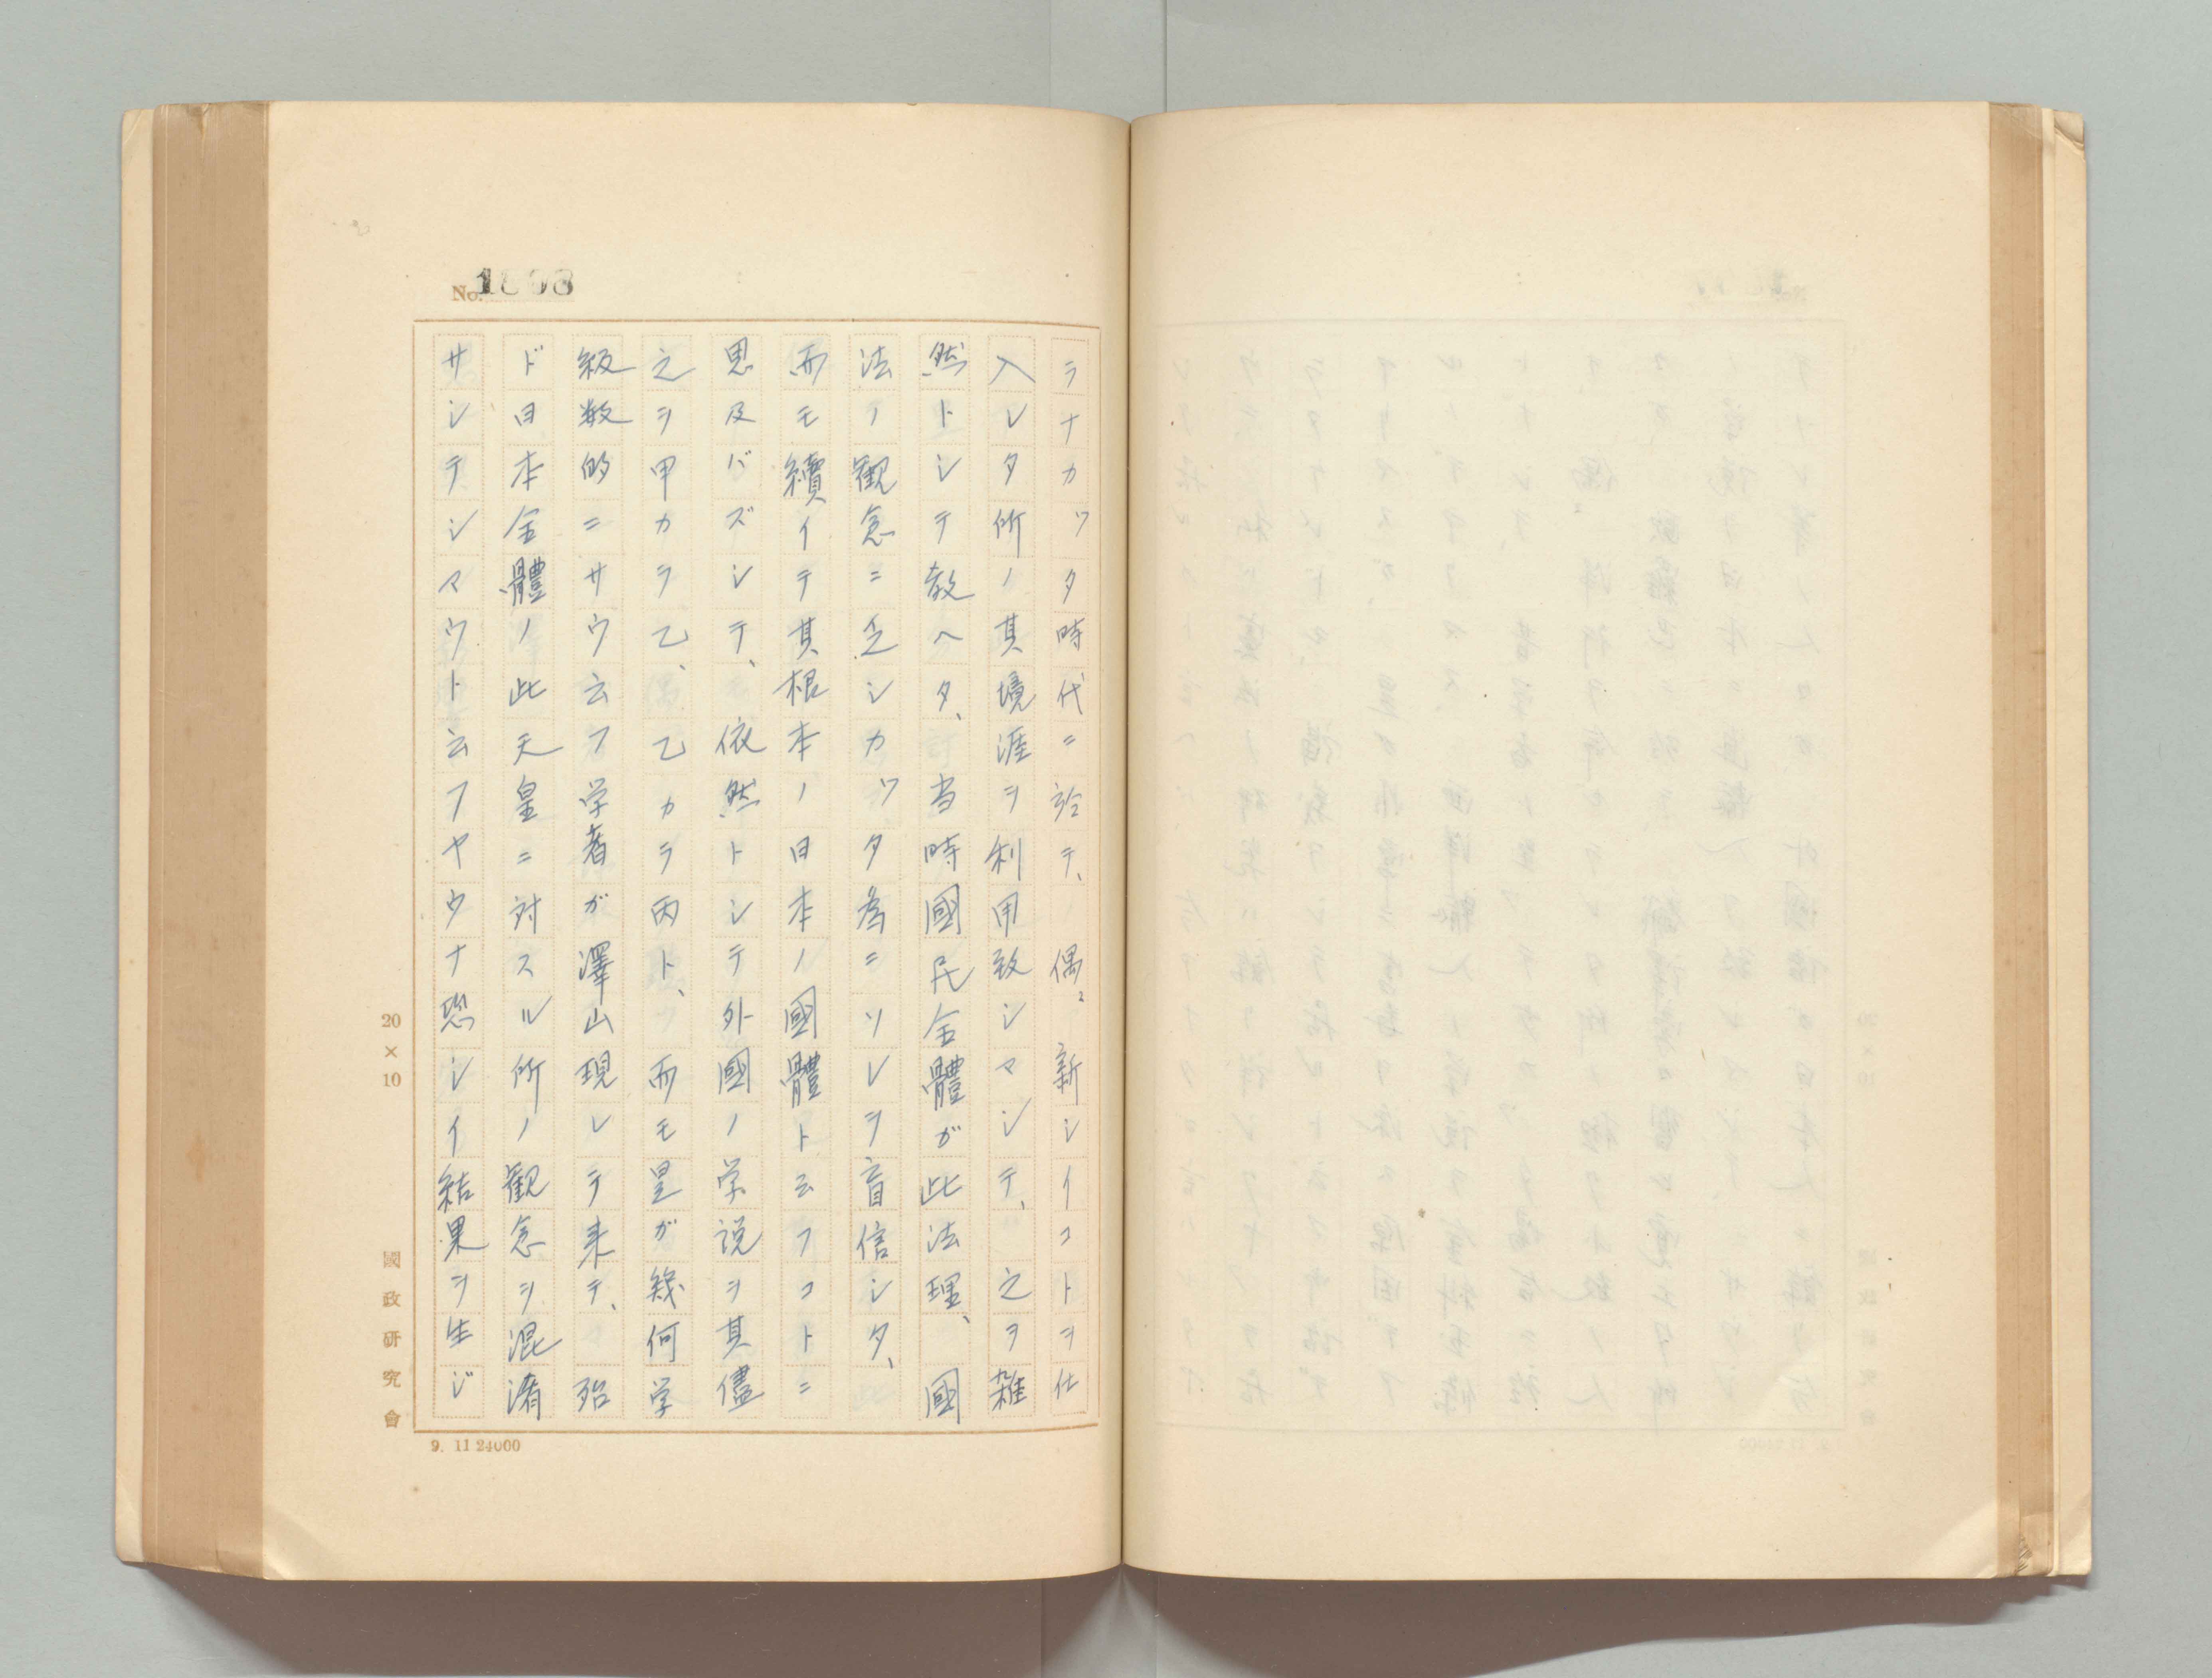 No. 1808
ラナカツタ時代ニ於テ、偶〻新シイコトヲ仕
入レタ所ノ其境涯ヲ利用致シマシテ、之ヲ雑
然トシテ教ヘタ、当時國民全體ガ此法理、國
法ノ観念ニ乏シカツタ為ニソレヲ盲信シタ、
而モ續イテ其根本ノ日本ノ國體ト云フコトニ
思及バズシテ、依然トシテ外國ノ学説ヲ其儘
之ヲ甲カラ乙、乙カラ丙ト、而モ是ガ幾何学
級数的ニサウ云フ学者ガ澤山現レテ来テ、殆
ド日本全體ノ此天皇ニ対スル所ノ観念ヲ混淆
サシテシマウト云フヤウナ恐シイ結果ヲ生ジ
20×10
國政研究會
9. 11 24000